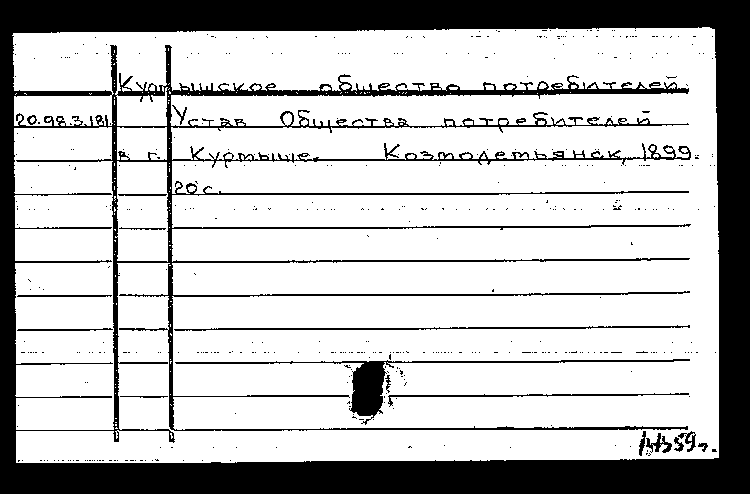 Курмышское общество потребителей.
20.98.3.181 Устав Общества потребителей
в г. Курмыше. Козмодемьянск, 1899.
20 с.